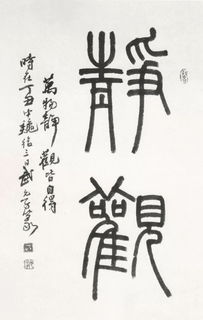 靜觀
萬物靜觀皆自得
時在丁丑中秋後三日武